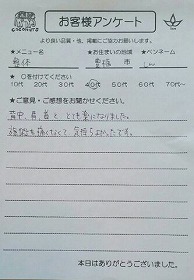 cocokura
お客様アンケート
より良い品質・他、掲載にご協力お願いします。
★メニュー名 ★お住まいの地域 ★ペンネーム
整体 豊橋 市 しん
★ ○を付けてください
10代 20代 30代 40代 50代 60代 70代〜
★ご意見・ご感想をお聞かせください。
背中、肩、首と とても楽になりました。
強さも痛くなくて 気持ちよかったです。
本日はありがとうございました。